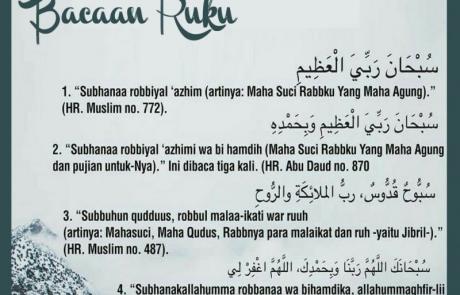 Bacaan Ruku
سُبْحَانَ رَبِّيَ الْعَظِيمِ
1. “Subhanaa robbiyal ‘azhim (artinya: Maha Suci Rabbku Yang Maha Agung).”
(HR. Muslim no. 772).
سُبْحَانَ رَبِّيَ الْعَظِيمِ وَبِحَمْدِهِ
2. “Subhanaa robbiyal ‘azhimi wa bi hamdih (Maha Suci Rabbku Yang Maha Agung
dan pujian untuk-Nya).” Ini dibaca tiga kali. (HR. Abu Daud no. 870
سُبُّوحٌ قُدُّوسٌ، رَبُّ المَلَائِكَةِ وَالرُّوحِ
3. “Subbuhun qudduus, robbul malaa-ikati war ruuh
(artinya: Mahasuci, Maha Qudus, Rabbnya para malaikat dan ruh -yaitu Jibril-).”
(HR. Muslim no. 487).
سُبْحَانَكَ اللَّهُمَّ رَبَّنَا وَبِحَمْدِكَ، اللَّهُمَّ اغْفِرْ لِي
4. “Subhanakallahumma robbanaa wa bihamdika, allahummaghfir-lii